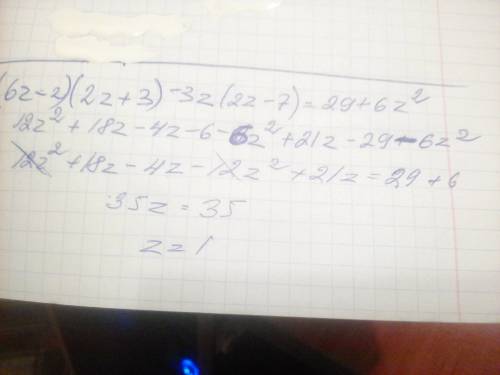 (6z-2)(2z+3)-3z(2z-7)=29+6z²
12z²+18z-4z-6-6z²+21z-29-6z²
12z²+18z-4z-12z²+21z=29+6
35z=35
z=1